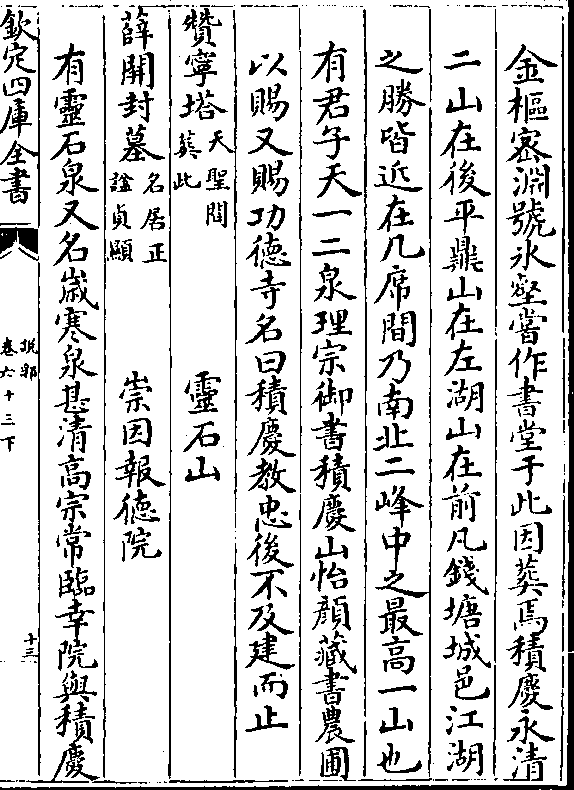 金樞宻淵號氷壑嘗作書堂于此因葬焉積慶永清
二山在後平鼎山在左湖山在前凡錢塘城邑江湖
之勝皆近在几席間乃南北二峰中之最高一山也
有君子天一二泉理宗御書積慶山怡顔藏書農圃
以賜又賜功德寺名曰積慶教忠後不及建而止
贊寧塔天聖間葬此　靈石山
薛開封墓名居正諡貞顯　崇因報德院
有靈石泉又名嵗寒泉甚清高宗常臨幸院與積慶
欽定四庫全書
説郛
卷六十三下
十三